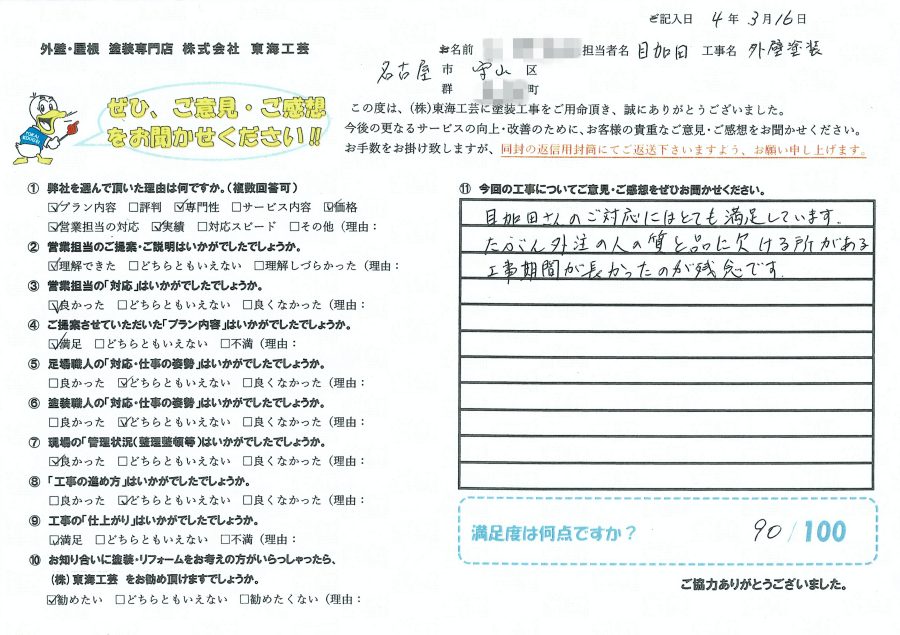 ご記入日 4年 3月16日
外壁・屋根 塗装専門店 株式会社 東海工芸
お名前 担当者名 目加田 工事名 外壁塗装
名古屋 市 守山 区
郡 町
ぜひ、ご意見・ご感想
をお聞かせください!!
この度は、(株)東海工芸に塗装工事をご用命頂き、誠にありがとうございました。
今後の更なるサービスの向上・改善のために、お客様の貴重なご意見・ご感想をお聞かせください。
お手数をお掛け致しますが、同封の返信用封筒にてご返送下さいますよう、お願い申し上げます。
① 弊社を選んで頂いた理由は何ですか。(複数回答可)
☑プラン内容 □評判 ☑専門性 □サービス内容 ☑価格
☑営業担当の対応 ☑実績 □対応スピード □その他(理由:
② 営業担当のご提案・ご説明はいかがでしたでしょうか。
☑理解できた □どちらともいえない □理解しづらかった(理由:
③ 営業担当の「対応」はいかがでしたでしょうか。
☑良かった □どちらともいえない □良くなかった(理由:
④ ご提案させていただいた「プラン内容」はいかがでしたでしょうか。
☑満足 □どちらともいえない □不満(理由:
⑤ 足場職人の「対応・仕事の姿勢」はいかがでしたでしょうか。
□良かった ☑どちらともいえない □良くなかった(理由:
⑥ 塗装職人の「対応・仕事の姿勢」はいかがでしたでしょうか。
□良かった ☑どちらともいえない □良くなかった(理由:
⑦ 現場の「管理状況(整理整頓等)はいかがでしたでしょうか。
☑良かった □どちらともいえない □良くなかった(理由:
⑧ 「工事の進め方」はいかがでしたでしょうか。
□良かった ☑どちらともいえない □良くなかった(理由:
⑨ 工事の「仕上がり」はいかがでしたでしょうか。
☑満足 □どちらともいえない □不満(理由:
⑩ お知り合いに塗装・リフォームをお考えの方がいらっしゃったら、
(株)東海工芸 をお勧め頂けますでしょうか。
☑勧めたい □どちらともいえない □勧めたくない(理由:
⑪ 今回の工事についてご意見・ご感想をぜひお聞かせください。
目加田さんのご対応にはとても満足しています.
たぶん外注の人の質と品に欠ける所がある
工事期間が長かったのが残念です.
満足度は何点ですか? 90/100
ご協力ありがとうございました。